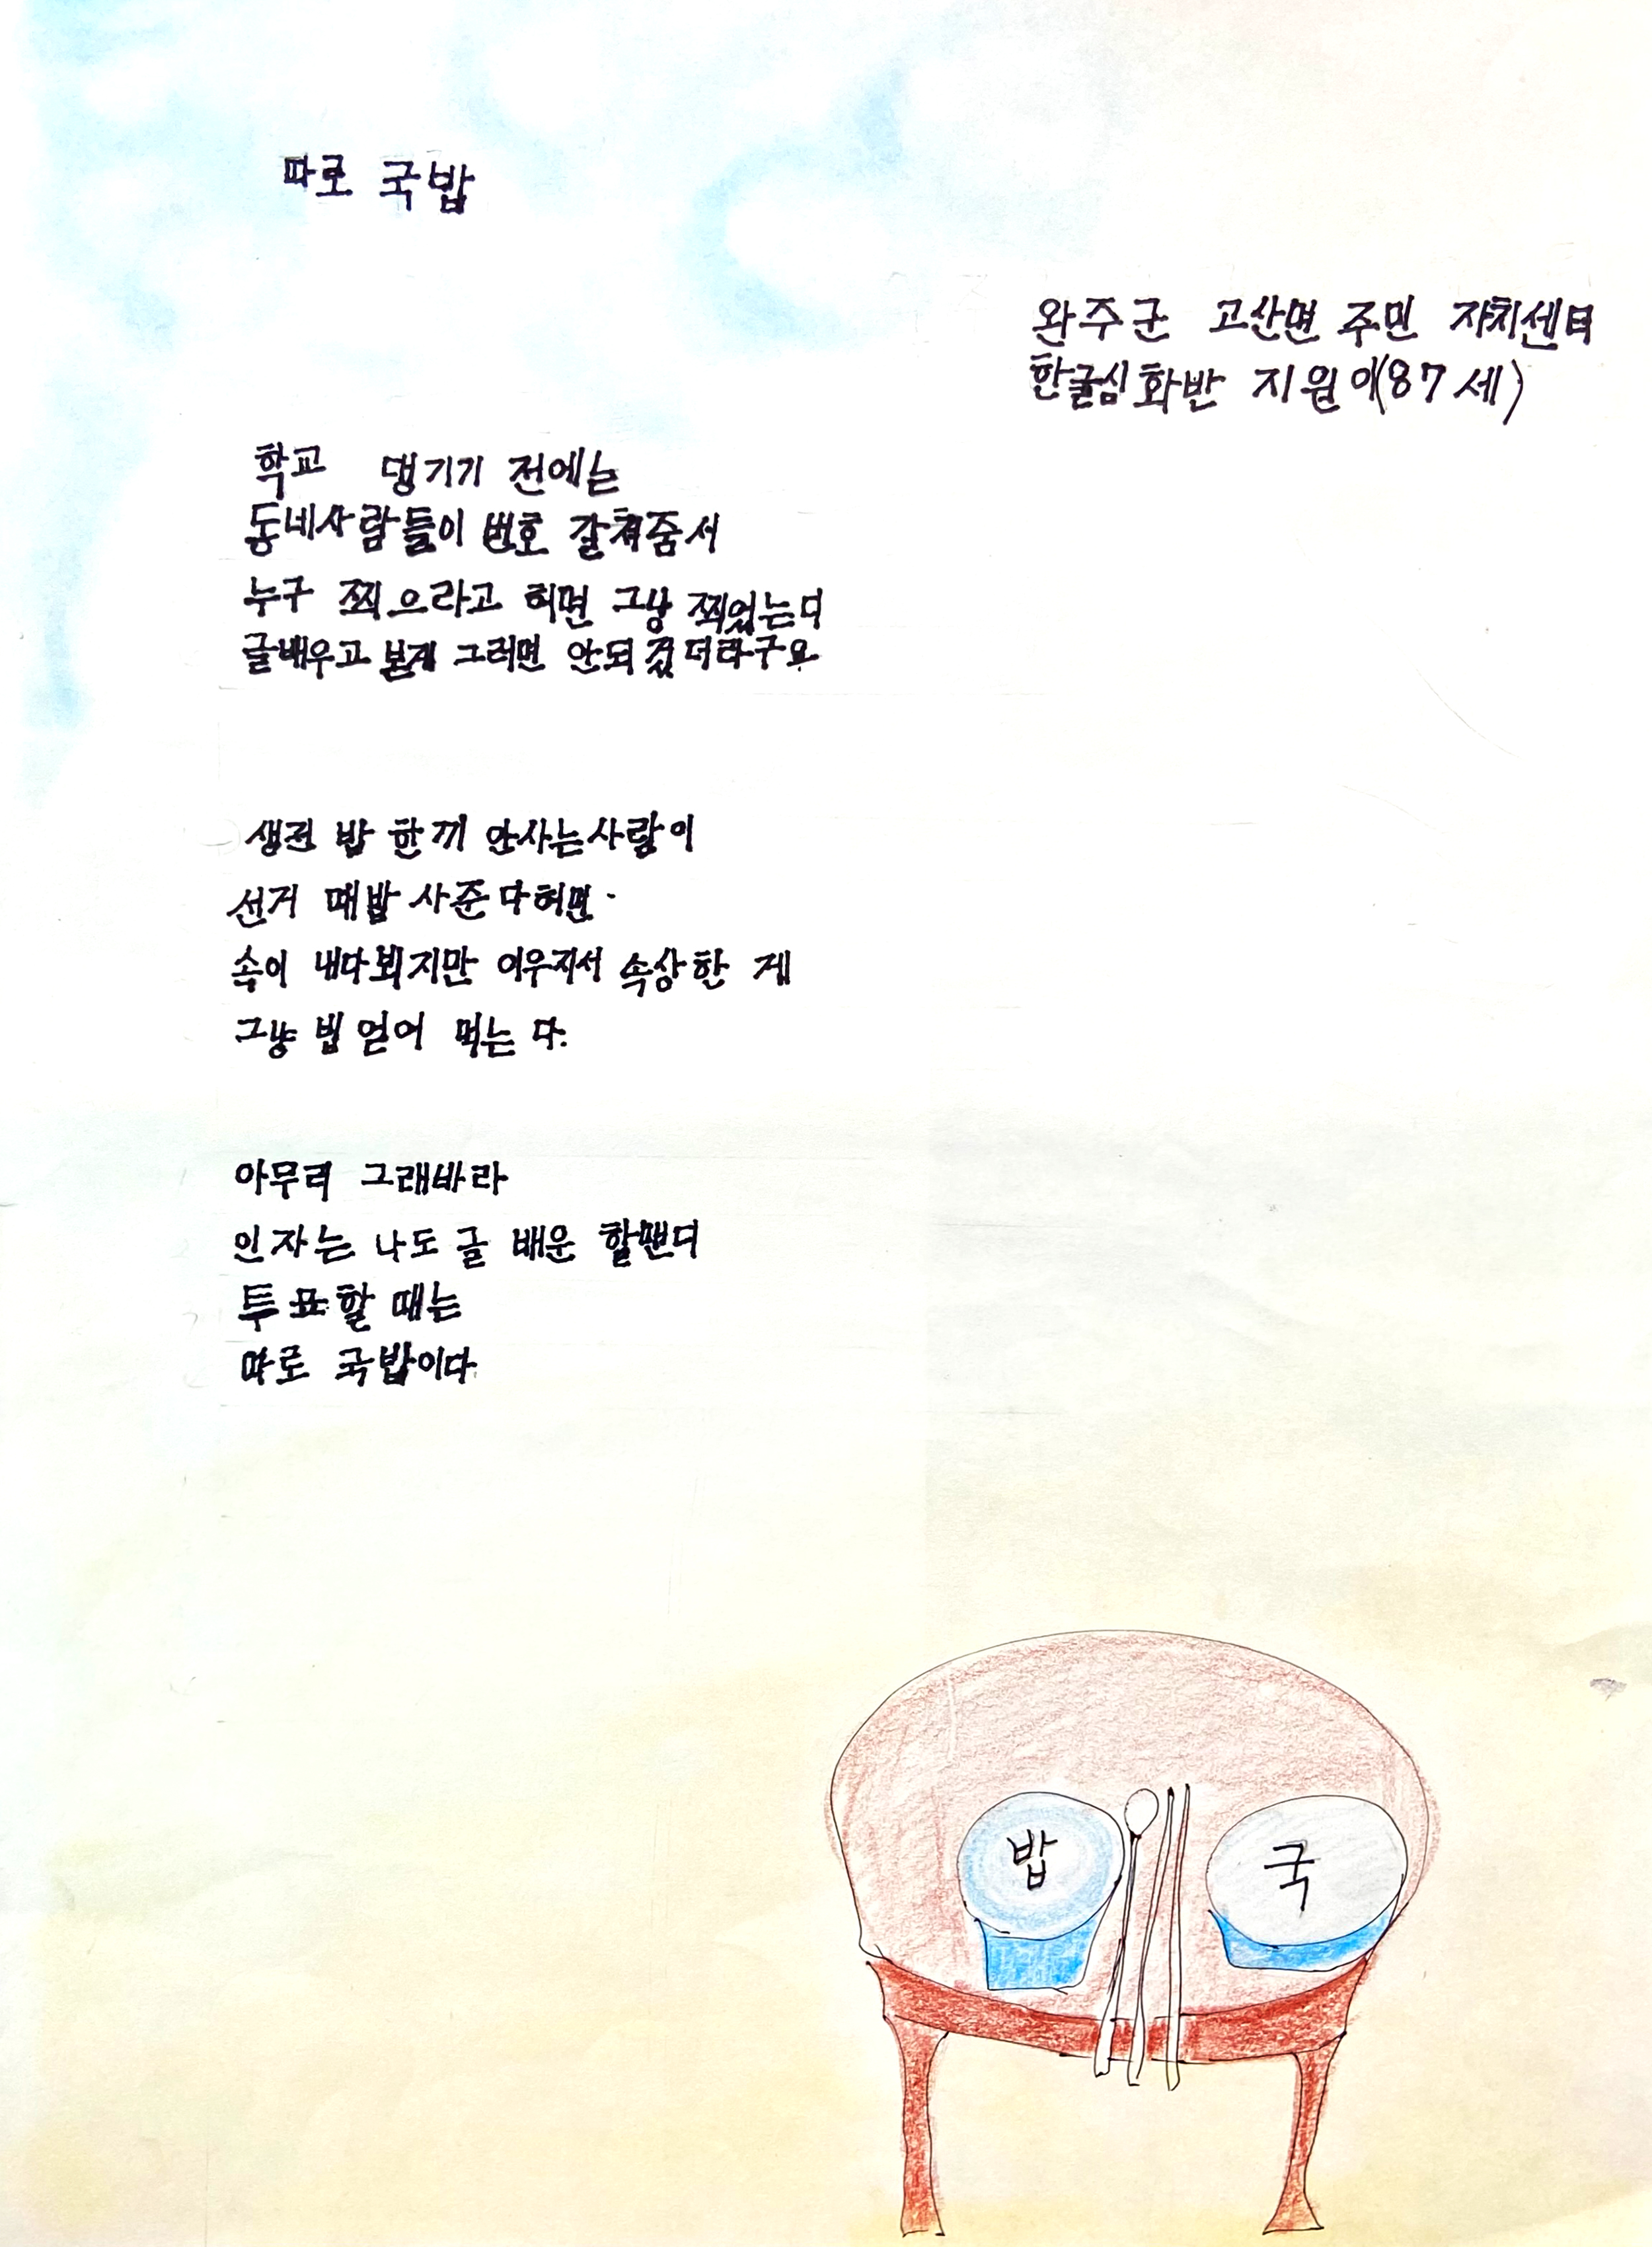 따로 국밥
완주군 고산면 주민 자치센터
한글심화반 지원이(87세)
학교 댕기기 전에는
동네사람들이 번호 갈쳐줌서
누구 찍으라고 허면 그냥 찍었는디
글배우고 본게 그러면 안되겠더라구요
생전 밥 한끼 안사는사람이
선거 때밥 사준다허면
속이 내다뵈지만 이우지서 속상한 게
그냥 밥 얻어 먹는다.
아무리 그래바라
인자는 나도 글 배운 할맨디
투표할 때는
따로 국밥이다
밥
국